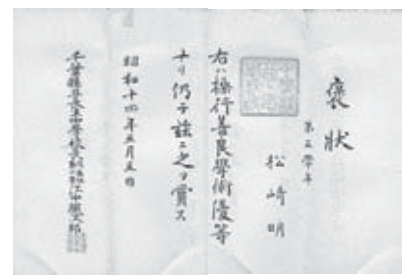 褒状
第五學年
松﨑明
右ハ操行善良學術優等
ナリ仍テ茲ニ之ヲ賞ス
昭和十四年三月五日
千葉縣立長生中學校長